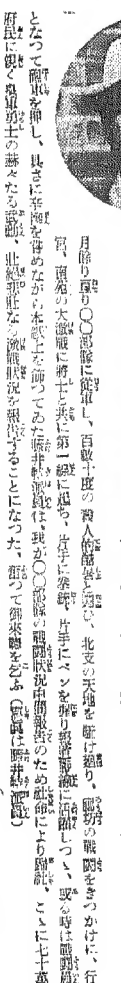 月餘り〇〇部隊に從軍し、百數十度の殺人的酷暑と鬪ひ、北支の天地を駈け廻り、廊坊の戰鬪をきつかけに、行
宮、南苑の大激戰に將士と共に第一線に起ち、片手に拳銃、片手にペンを握り報道戰線に活躍しつゝ、或る時は戰鬪員
となつて砲車を押し、具さに辛酸を嘗めながら本紙上を飾つてゐた藤井特派員は、我が〇〇部隊の戰鬪狀況中間報告のため社命により歸社、こゝに七十萬
府民に親く皇軍勇士の赫々たる武勳、壯絕悲壯なる激戰狀況を報告することになつた、揃つて御來聽を乞ふ(寫眞は藤井特派員)